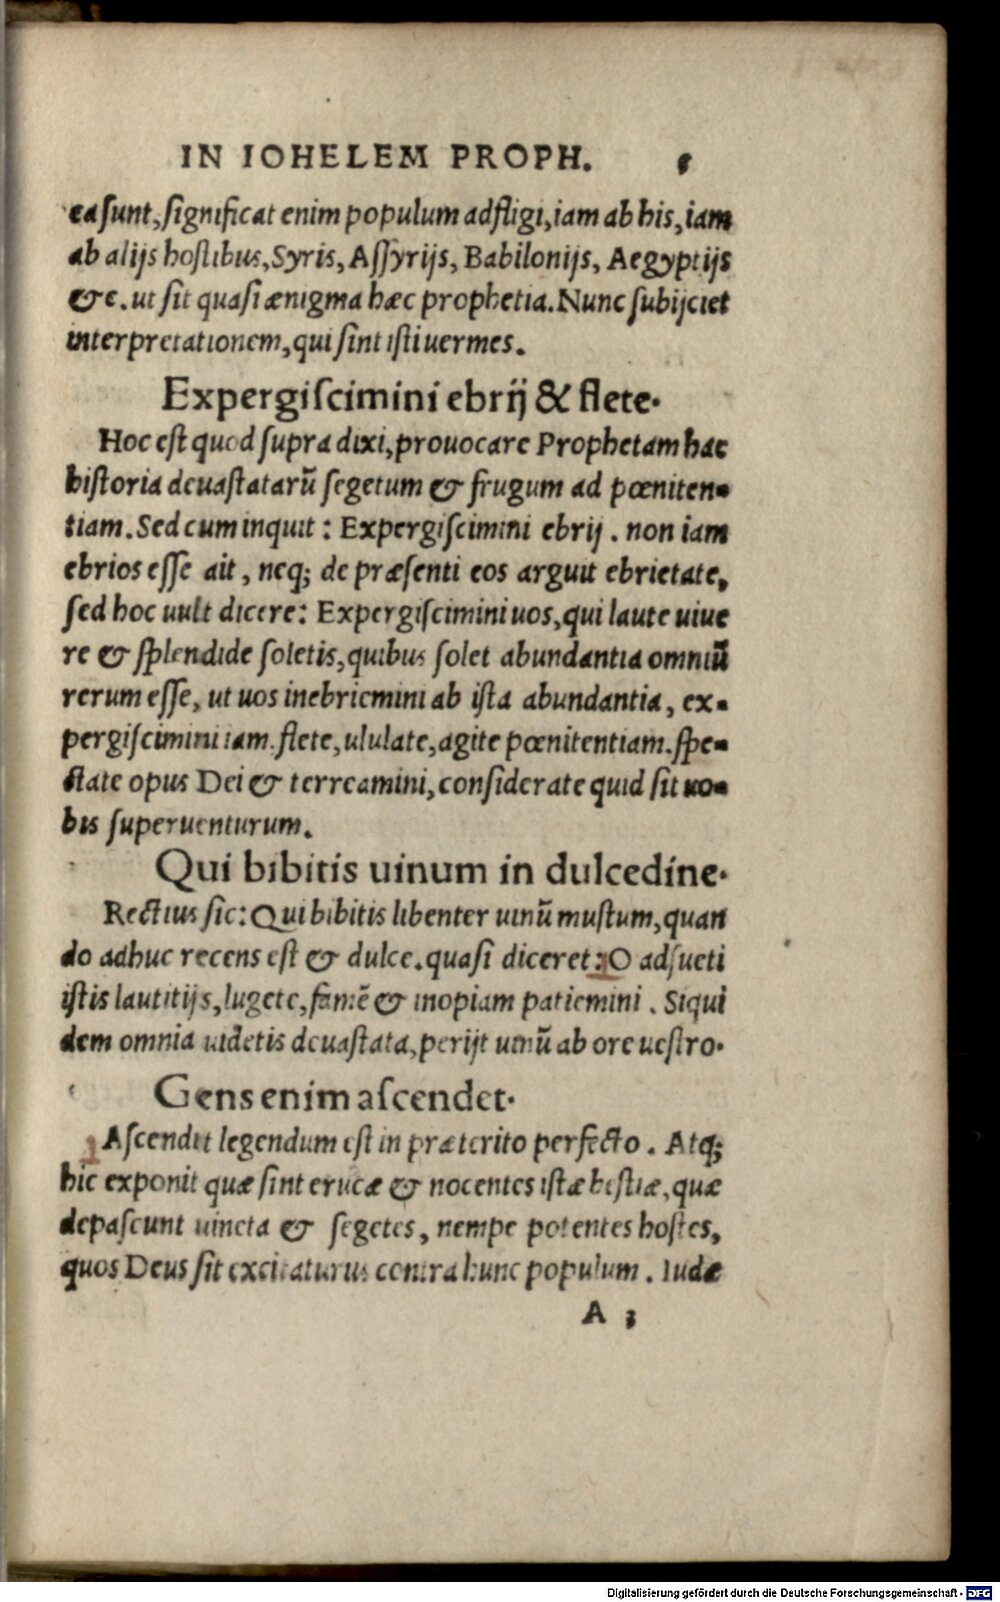 IN IOHELEM PROPH.
ea sunt, significat enim populum adfligi, iam ab his, iam
ab alijs hostibus, Syris, Assyrijs, Babilonijs, Aegyptijs
&c. ut sit quasi ænigma hæc prophetia. Nunc subijciet
interpretationem, qui sint isti uermes.
Expergiscimini ebrij & flete.
Hoc est quod supra dixi, prouocare Prophetam hac
historia deuastatarũ segetum & frugum ad pœniten-
tiam. Sed cum inquit : Expergiscimini ebrij . non iam
ebrios esse ait, neq; de præsenti eos arguit ebrietate,
sed hoc uult dicere: Expergiscimini uos, qui laute uiue
re & splendide soletis, quibus solet abundantia omniũ
rerum esse, ut uos inebriemini ab ista abundantia, ex-
pergiscimini iam. flete, ululate, agite pœnitentiam. spe-
ctate opus Dei & terreamini, considerate quid sit uo-
bis superuenturum.
Qui bibitis uinum in dulcedine.
Rectius sic: Qui bibitis libenter uinũ mustum, quan
do adhuc recens est & dulce. quasi diceret: O adsueti
istis lautitijs, lugete, famẽ & inopiam patiemini . Siqui
dem omnia uidetis deuastata, perijt uinũ ab ore uestro.
Gens enim ascendet.
Ascendit legendum est in præterito perfecto . Atq;
hic exponit quæ sint erucæ & nocentes istæ bestiæ, quæ
depascunt uineta & segetes, nempe potentes hostes,
quos Deus sit excitaturus contra hunc populum . Iudæ
A 3
Digitalisierung gefördert durch die Deutsche Forschungsgemeinschaft - DFG